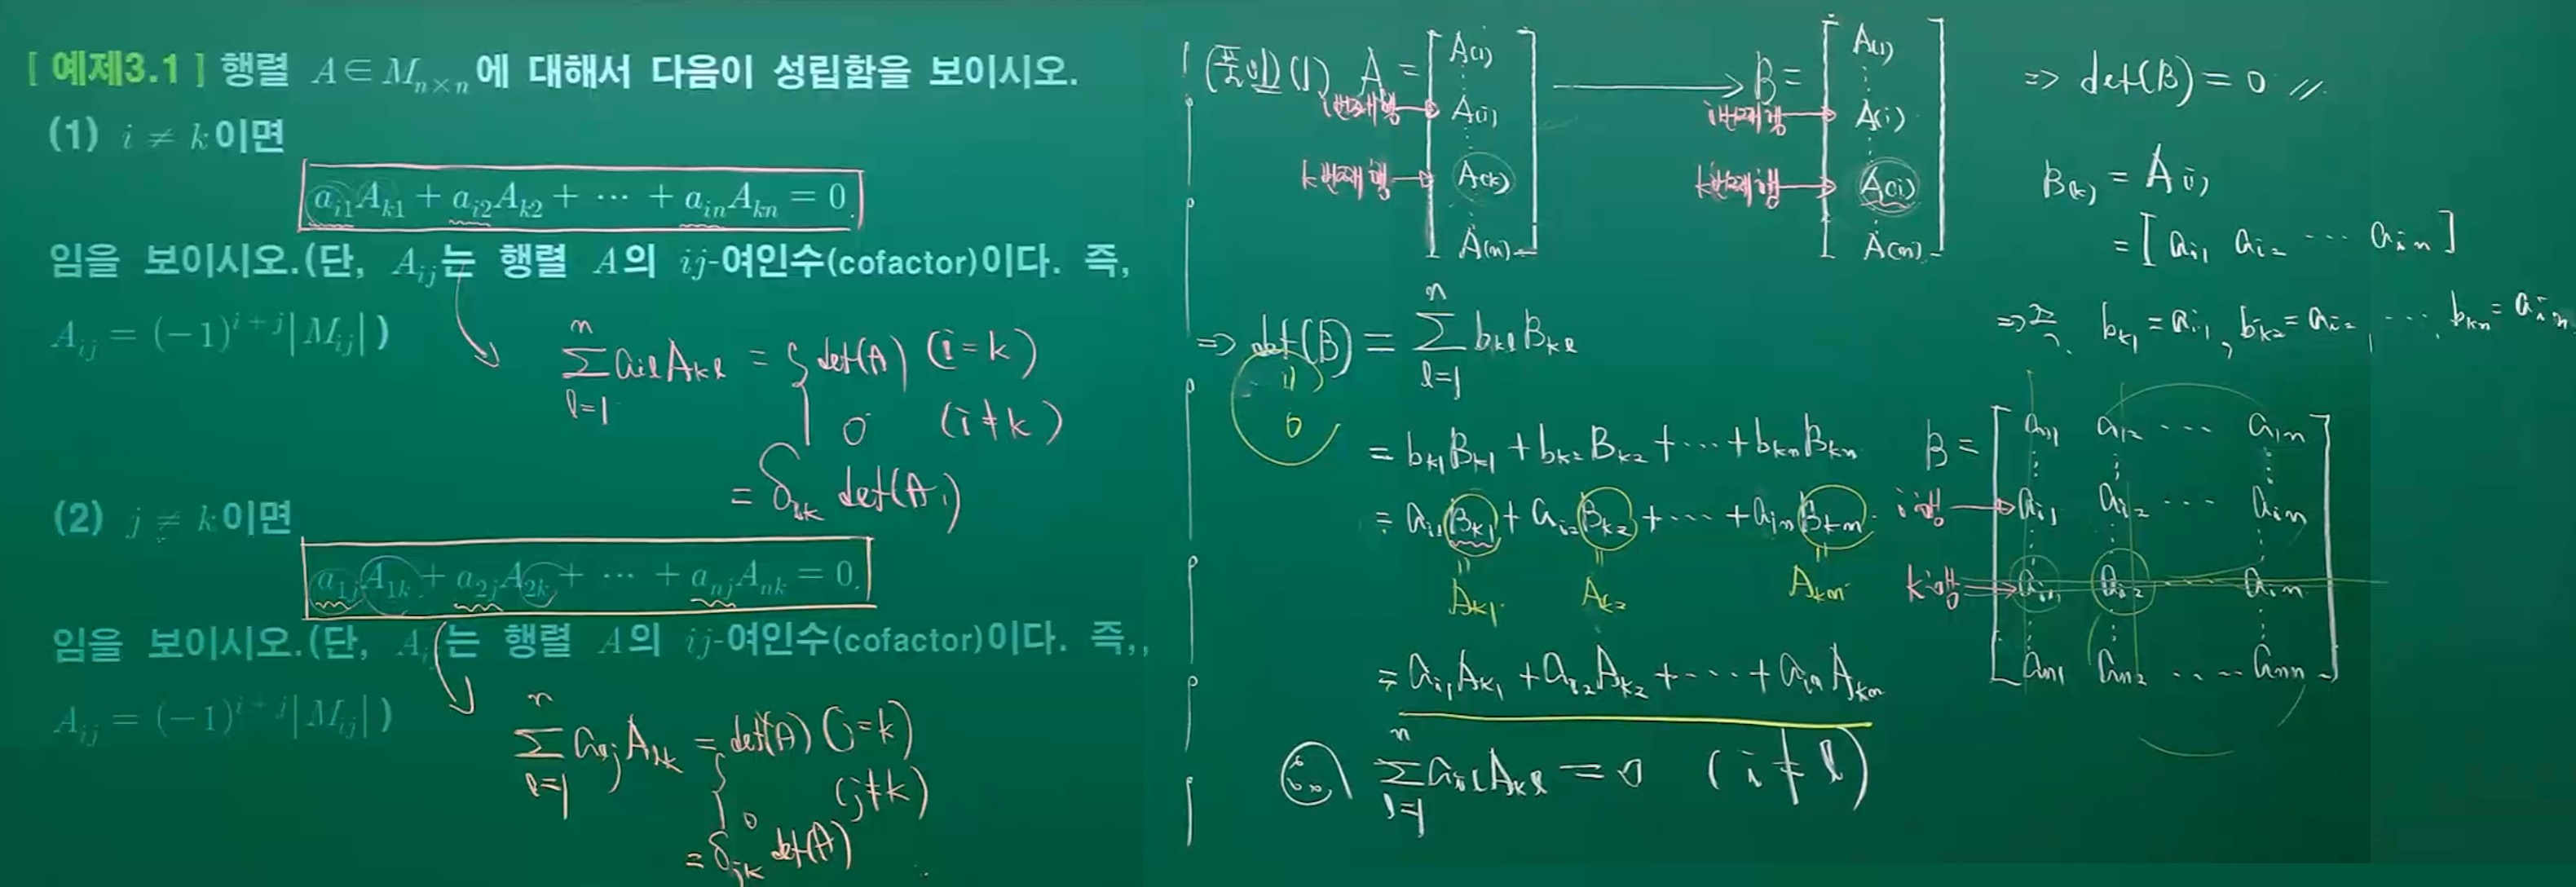 [ 예제3.1 ] 행렬 A∈M_{n×n}에 대해서 다음이 성립함을 보이시오.
(1) i ≠ k이면
a_{i1}A_{k1} + a_{i2}A_{k2} + ⋯ + a_{in}A_{kn} = 0.
임을 보이시오.(단, A_{ij}는 행렬 A의 ij-여인수(cofactor)이다. 즉,
A_{ij} = (-1)^{i+j}|M_{ij}|)
\sum_{l=1}^{n} a_{il}A_{kl} = { det(A) (i=k)
0 (i≠k)
= δ_{ik} det(A)
(2) j ≠ k이면
a_{1j}A_{1k} + a_{2j}A_{2k} + ⋯ + a_{nj}A_{nk} = 0.
임을 보이시오.(단, A_{ij}는 행렬 A의 ij-여인수(cofactor)이다. 즉,,
A_{ij} = (-1)^{i+j}|M_{ij}|)
\sum_{l=1}^{n} a_{lj}A_{lk} = { det(A) (j=k)
0 (j≠k)
= δ_{jk} det(A)
(풀이) (1) A = [ A(1) ⋮ A(i) ⋮ A(k) ⋮ A(n) ] → B = [ A(1) ⋮ A(i) ⋮ A(i) ⋮ A(n) ] ⇒ det(B) = 0 //
i번째행 → i번째행 →
k번째행 → k번째행 →
B(k) = A(i)
= [ a_{i1} a_{i2} ⋯ a_{in} ]
⇒ b_{k1} = a_{i1}, b_{k2} = a_{i2}, ⋯, b_{kn} = a_{in}
⇒ det(B) = \sum_{l=1}^{n} b_{kl}B_{kl}
॥
0
= b_{k1}B_{k1} + b_{k2}B_{k2} + ⋯ + b_{kn}B_{kn}
= a_{i1}B_{k1} + a_{i2}B_{k2} + ⋯ + a_{in}B_{kn}
॥ ॥ ॥
A_{k1} A_{k2} A_{kn}
= a_{i1}A_{k1} + a_{i2}A_{k2} + ⋯ + a_{in}A_{kn}
∴ \sum_{l=1}^{n} a_{il}A_{kl} = 0 (i ≠ l)
B = [ a_{11} a_{12} ⋯ a_{1n}
i행 → a_{i1} a_{i2} ⋯ a_{in}
k행 → a_{i1} a_{i2} ⋯ a_{in}
a_{n1} a_{n2} ⋯ a_{nn} ]